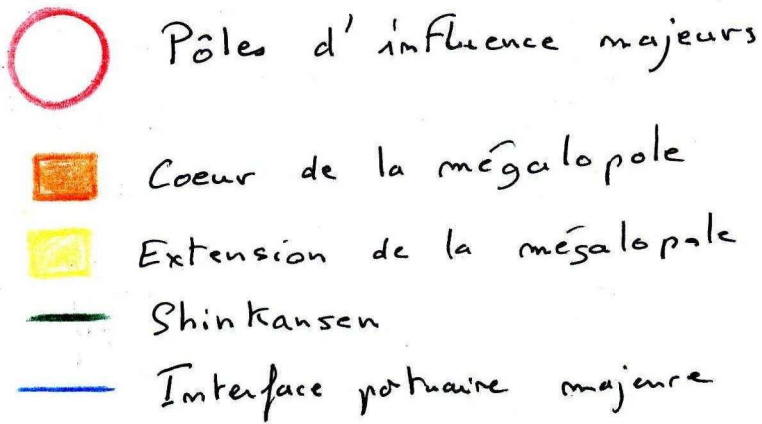 Pôles d'influence majeurs
Coeur de la mégalopole
Extension de la mégalopole
Shinkansen
Interface portuaire majeure